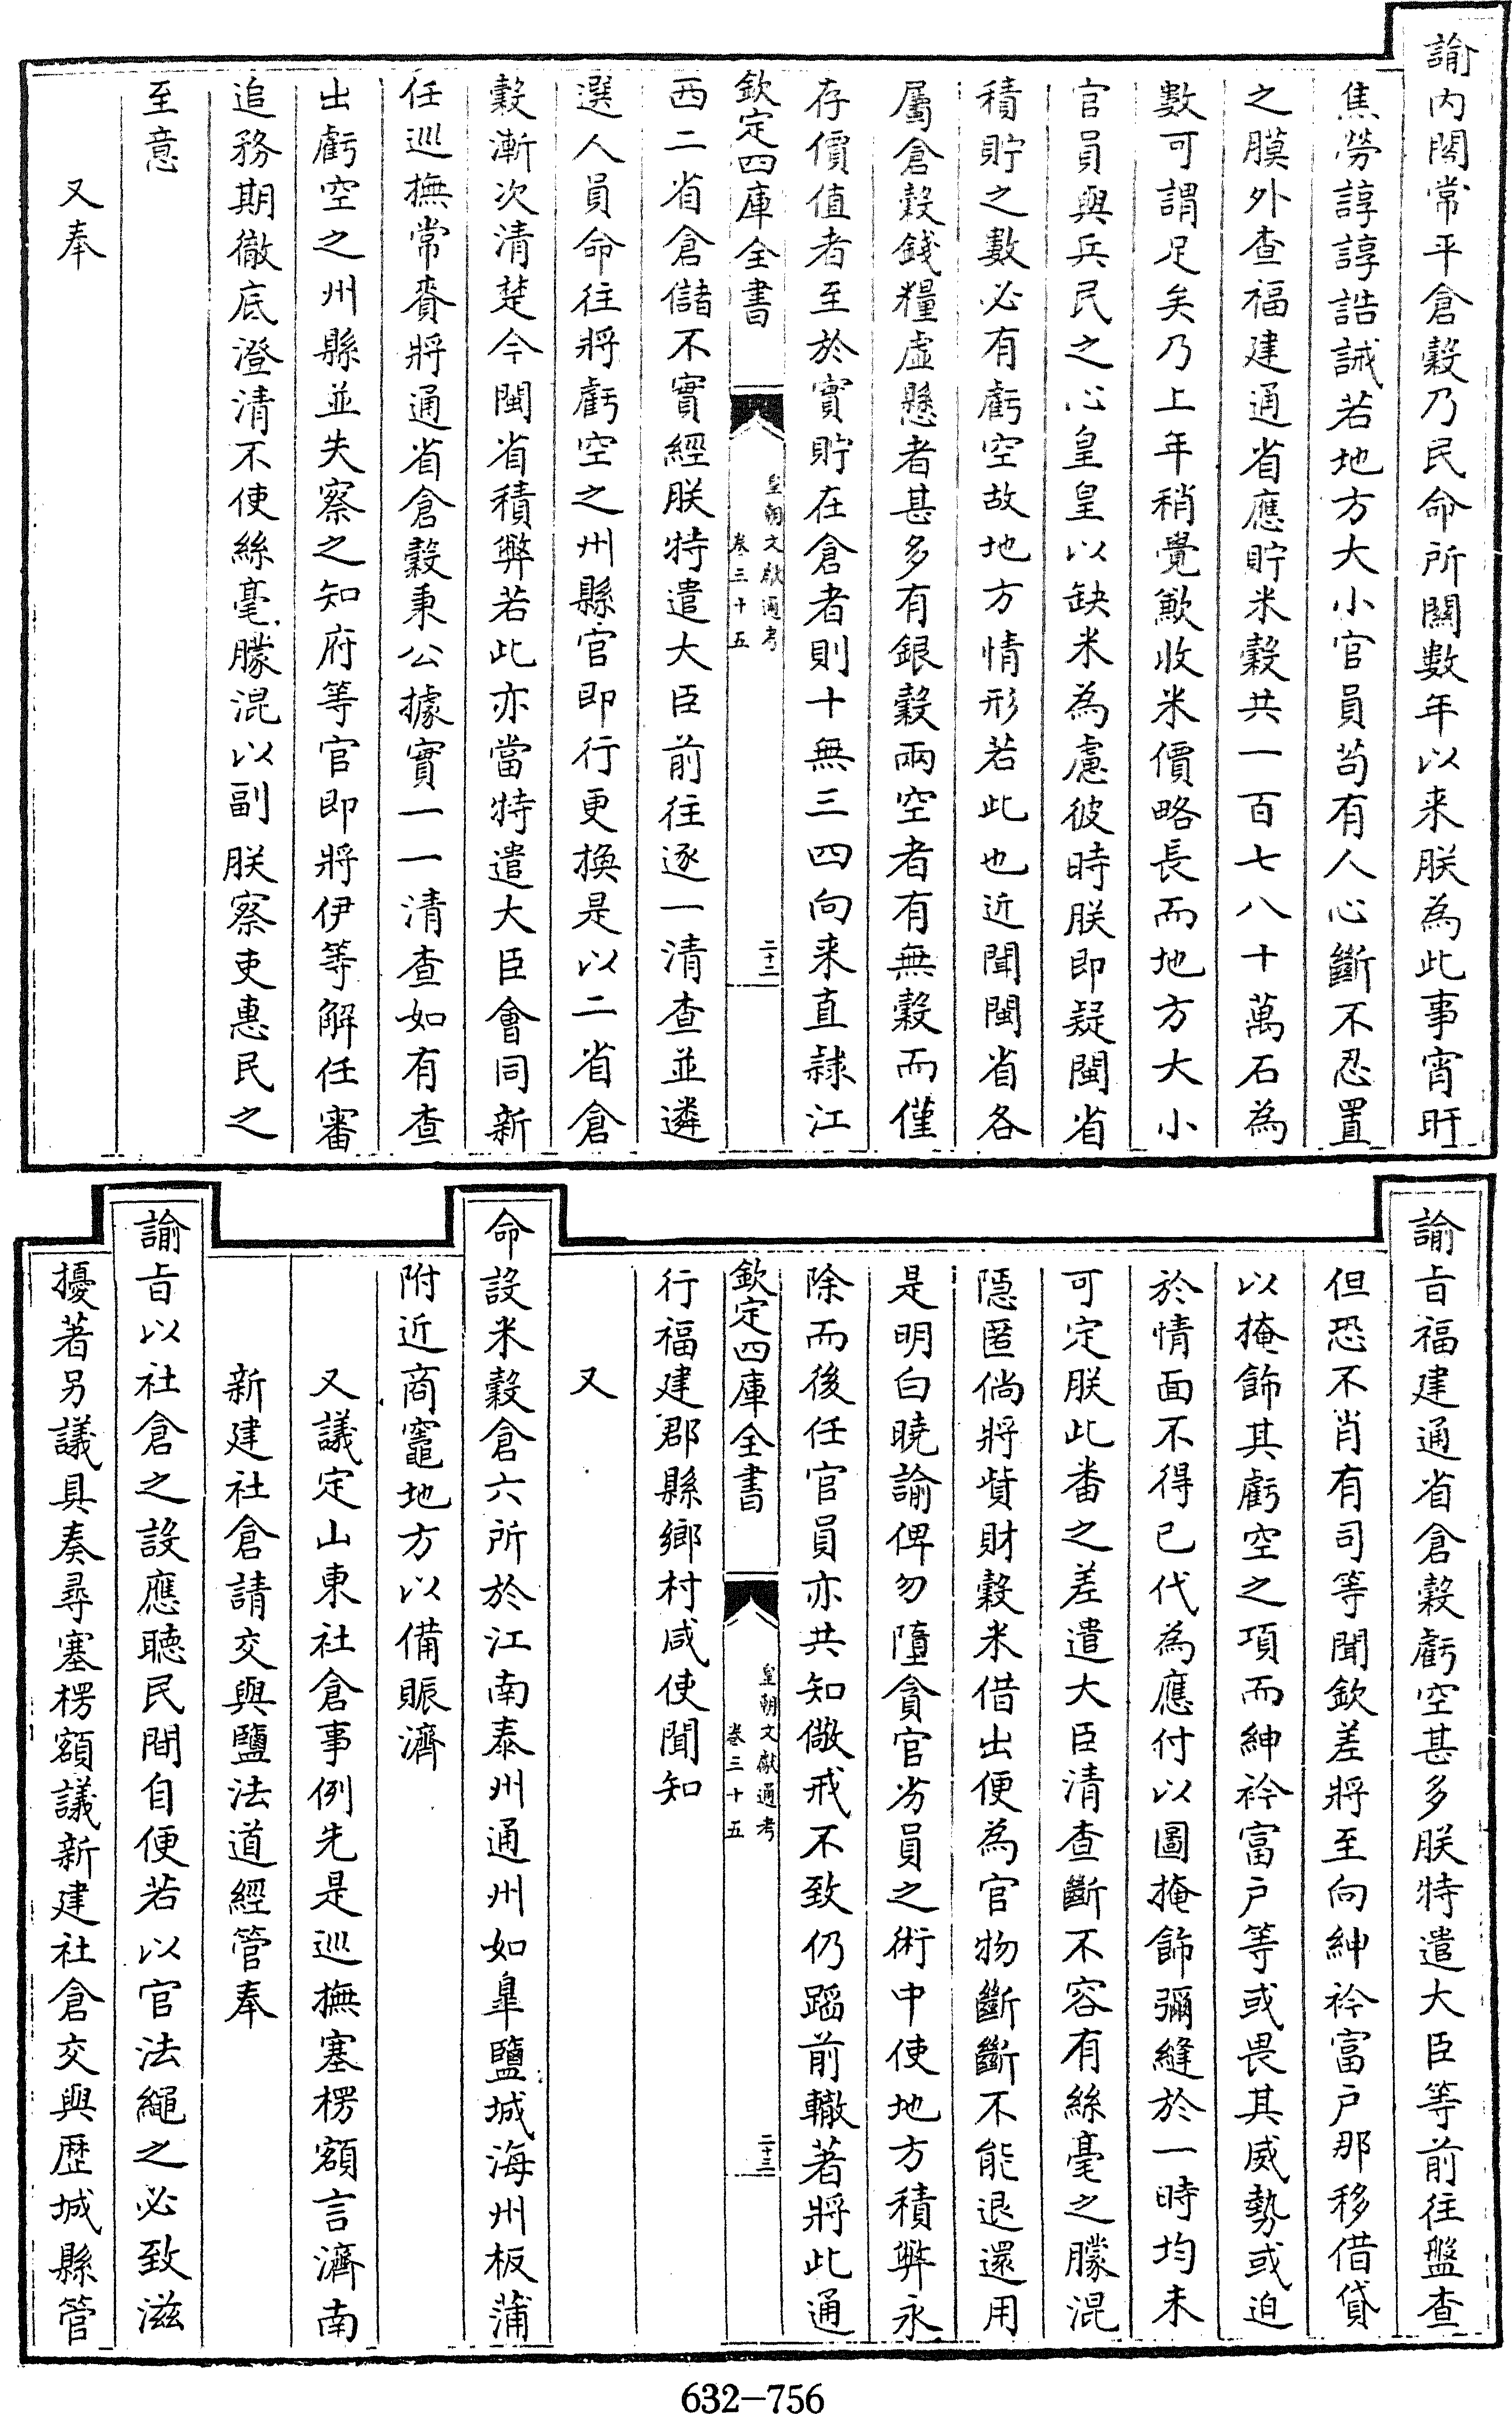 諭内閣常平倉穀乃民命所闗數年以来朕為此事宵旰
焦勞諄諄誥誡若地方大小官員茍有人心斷不忍置
之膜外查福建通省應貯米穀共一百七八十萬石為
數可謂足矣乃上年稍覺歉收米價略長而地方大小
官員與兵民之心皇皇以缺米為慮彼時朕即疑閩省
積貯之數必有虧空故地方情形若此也近聞閩省各
屬倉穀錢糧虚懸者甚多有銀穀兩空者有無穀而僅
存價值者至於實貯在倉者則十無三四向来直隷江
欽定四庫全書
皇朝文獻通考
卷三十五
二十二
西二省倉儲不實經朕特遣大臣前往逐一清查並遴
選人員命往將虧空之州縣官即行更換是以二省倉
穀漸次清楚今閩省積弊若此亦當特遣大臣會同新
任巡撫常賚將通省倉穀秉公據實一一清查如有查
出虧空之州縣並失察之知府等官即將伊等解任審
追務期徹底澄清不使絲毫朦混以副朕察吏惠民之
至意
又奉
諭㫖福建通省倉穀虧空甚多朕特遣大臣等前往盤查
但恐不肖有司等聞欽差將至向紳衿富户那移借貸
以掩飾其虧空之項而紳衿富户等或畏其威勢或迫
於情面不得已代為應付以圖掩飾彌縫於一時均未
可定朕此番之差遣大臣清查斷不容有絲毫之朦混
隠匿倘將貲財穀米借出便為官物斷斷不能退還用
是明白曉諭俾勿墮貪官劣員之術中使地方積弊永
除而後任官員亦共知儆戒不致仍蹈前轍著將此通
欽定四庫全書
皇朝文獻通考
卷三十五
二十三
行福建郡縣鄉村咸使聞知
又
命設米穀倉六所於江南泰州通州如臯鹽城海州板蒲
附近商竈地方以備賑濟
又議定山東社倉事例先是巡撫塞楞額言濟南
新建社倉請交與鹽法道經管奉
諭㫖以社倉之設應聽民間自便若以官法繩之必致滋
擾著另議具奏尋塞楞額議新建社倉交與歴城縣管
632-756